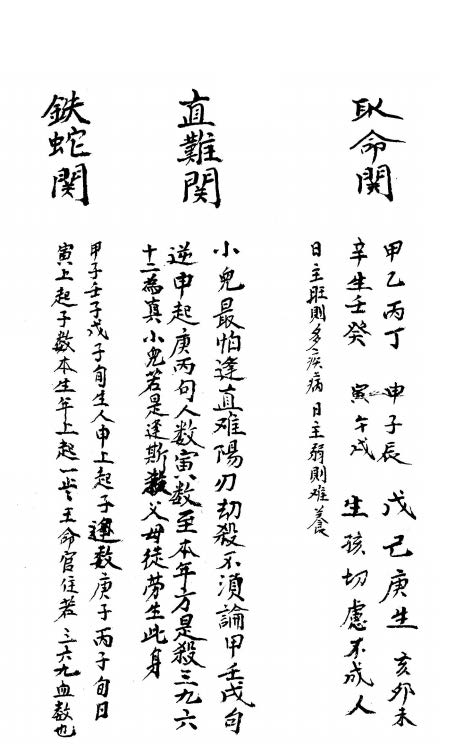 取命関
甲乙丙丁 申子辰 戊己庚生 亥卯未
辛生壬癸 寅午戌 生孩切慮不成人
日主旺則多疾病 日主弱則难養
直難関
小兒最怕逢直难陽刃劫殺不須論甲壬戌旬
逆申起庚丙旬人数寅次数至本年方是殺三九六
十二為真小兒若是逢斯数父母徒劳生此身
鉄蛇関
甲子壬子戊子旬生人申上起子逆数庚子丙子旬日
寅上起子数本生年上起一岁王命官住若三六九血数也